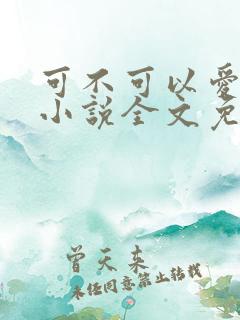 可不可以愛
小説全文免
曾天来
未经同意禁止转载